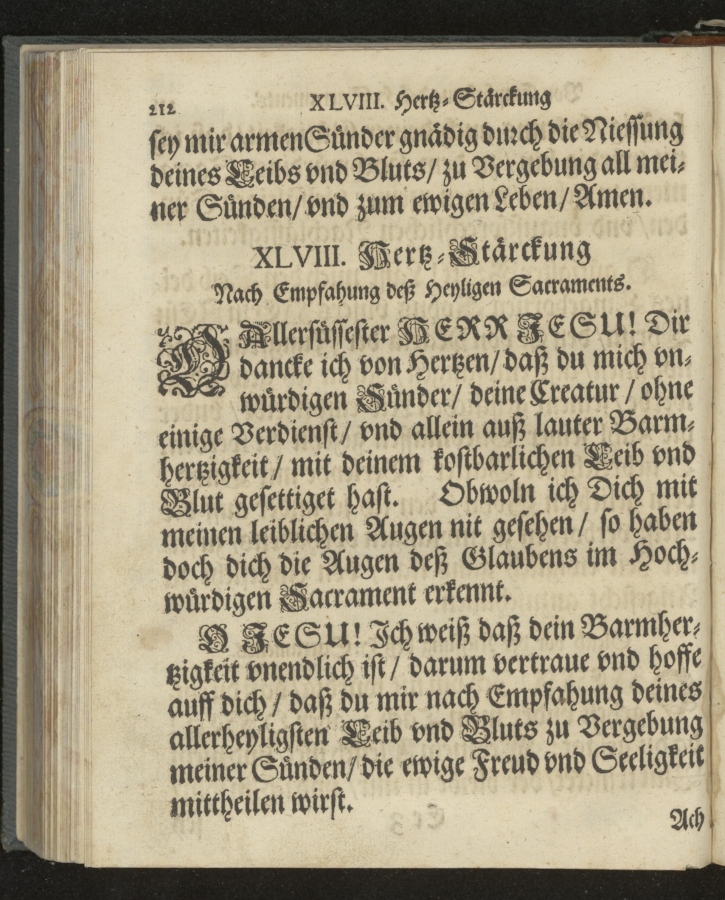 212 XLVIII. Hertz-Stärckung
sey mir armen Sünder gnädig durch die Niessung
deines Leibs vnd Bluts/ zu Vergebung all mei-
ner Sünden/ vnd zum ewigen Leben/ Amen.
XLVIII. Hertz-Stärckung
Nach Empfahung deß Heyligen Sacraments.
O Allersüssester HERR JESU! Dir
dancke ich von Hertzen/ daß du mich vn-
würdigen Sünder/ deine Creatur / ohne
einige Verdienst/ vnd allein auß lauter Barm-
hertzigkeit / mit deinem kostbarlichen Leib vnd
Blut gesettiget hast. Obwoln ich Dich mit
meinen leiblichen Augen nit gesehen / so haben
doch dich die Augen deß Glaubens im Hoch-
würdigen Sacrament erkennt.
O JESU! Ich weiß daß dein Barmher-
tzigkeit vnendlich ist / darum vertraue vnd hoffe
auff dich / daß du mir nach Empfahung deines
allerheyligsten Leib vnd Bluts zu Vergebung
meiner Sünden/ die ewige Freud vnd Seeligkeit
mittheilen wirst.
Ach